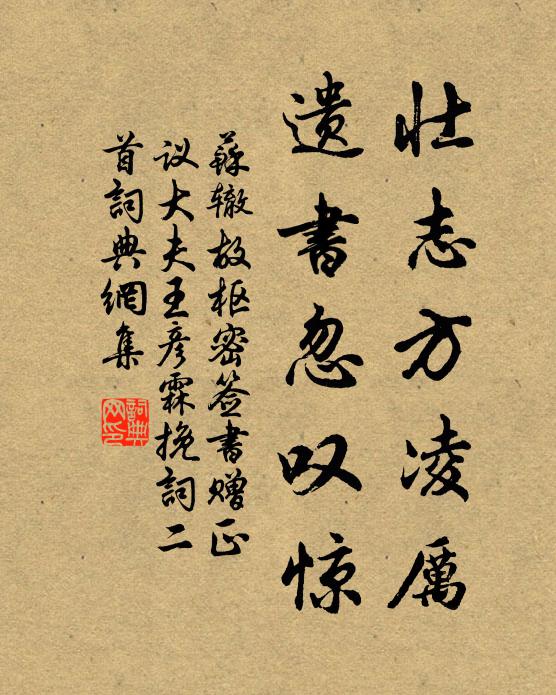 壮志方凌厲
遗書忽叹惊
蘇辙故枢密签書赠正
议大夫王彦霖挽詞二
首詞典網集
詞典
网印